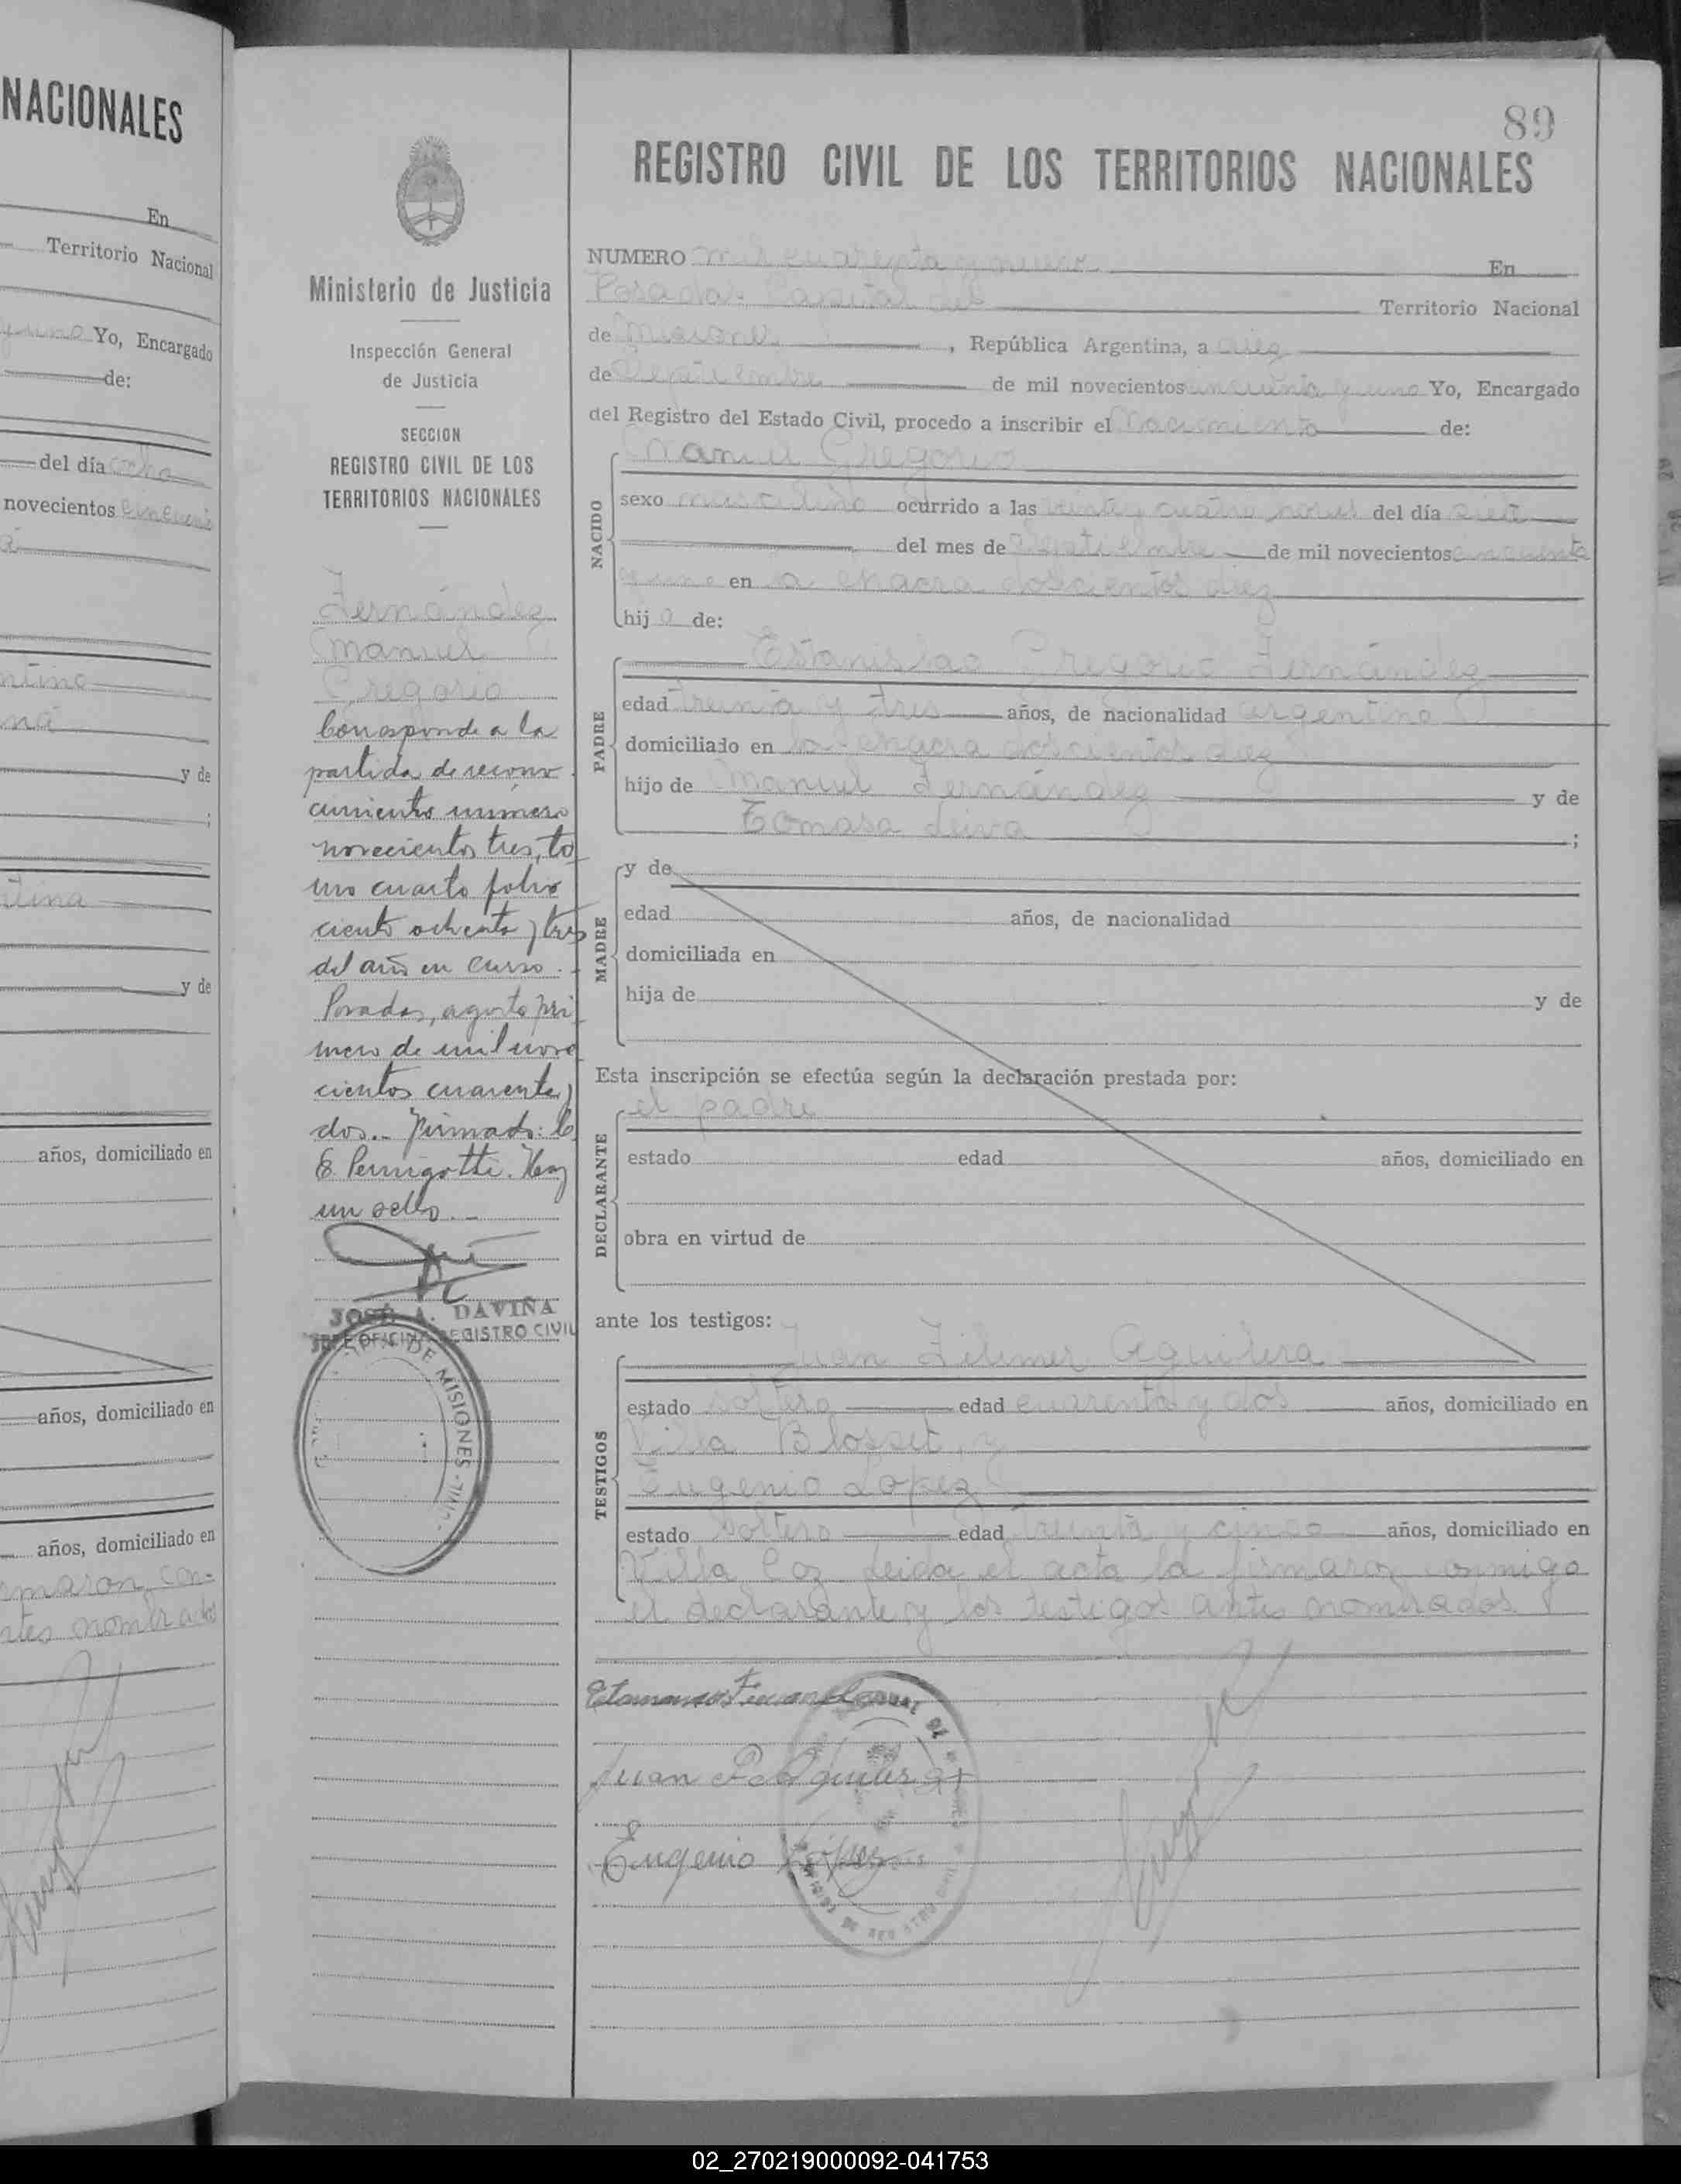 NACIONALES
En
Territorio Nacional
y uno Yo, Encargado
de:
del día ocho
novecientos cincuen
ntino
y de
;
tina
y de
años, domiciliado en
años, domiciliado en
años, domiciliado en
maron con-
ntes nombrados
Ministerio de Justicia
Inspección General
de Justicia
SECCION
REGISTRO CIVIL DE LOS
TERRITORIOS NACIONALES
Fernández
Manuel
Gregorio
Corresponde a la
partida de recono
cimiento número
novecientos tres, to
mo cuarto folio
ciento ochenta y tres
del año en curso.
Posadas, agosto pri
mero de mil nove
cientos cuarenta y
dos.. Firmado: C.
E. Pernigotti. Hay
un sello.
JOSÉ A. DAVIÑA
JEFE OFICINA REGISTRO CIVIL
DE MISIONES
89
REGISTRO CIVIL DE LOS TERRITORIOS NACIONALES
NUMERO mil cuarenta y nueve En
Posadas Capital del Territorio Nacional
de Misiones, República Argentina, a diez
de Septiembre de mil novecientos cincuenta y uno Yo, Encargado
del Registro del Estado Civil, procedo a inscribir el Nacimiento de:
Manuel Gregorio
NACIDO
sexo masculino ocurrido a las veinte y cuatro horas del día siete
del mes de Septiembre de mil novecientos cincuenta
y uno en la chacra doscientos diez
hijo de:
PADRE
Estanislao Gregorio Fernández
edad treinta y tres años, de nacionalidad argentino
domiciliado en la chacra doscientos diez
hijo de Manuel Fernández y de
Tomasa Leiva ;
MADRE
y de
edad años, de nacionalidad
domiciliada en
hija de y de
Esta inscripción se efectúa según la declaración prestada por:
DECLARANTE
el padre
estado edad años, domiciliado en
obra en virtud de
ante los testigos:
TESTIGOS
Juan Aguilera
estado soltero edad cuarenta y dos años, domiciliado en
Villa Blosset, y
Eugenio Lopez
estado soltero edad treinta y cinco años, domiciliado en
Villa Coz Leida el acta la firmaron conmigo
el declarante y los testigos antes nombrados
Fernandez
Juan Aguilera
Eugenio López
02_270219000092-041753